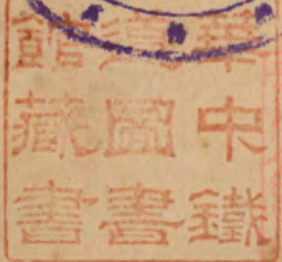 華中鐵
道圖書
館藏書